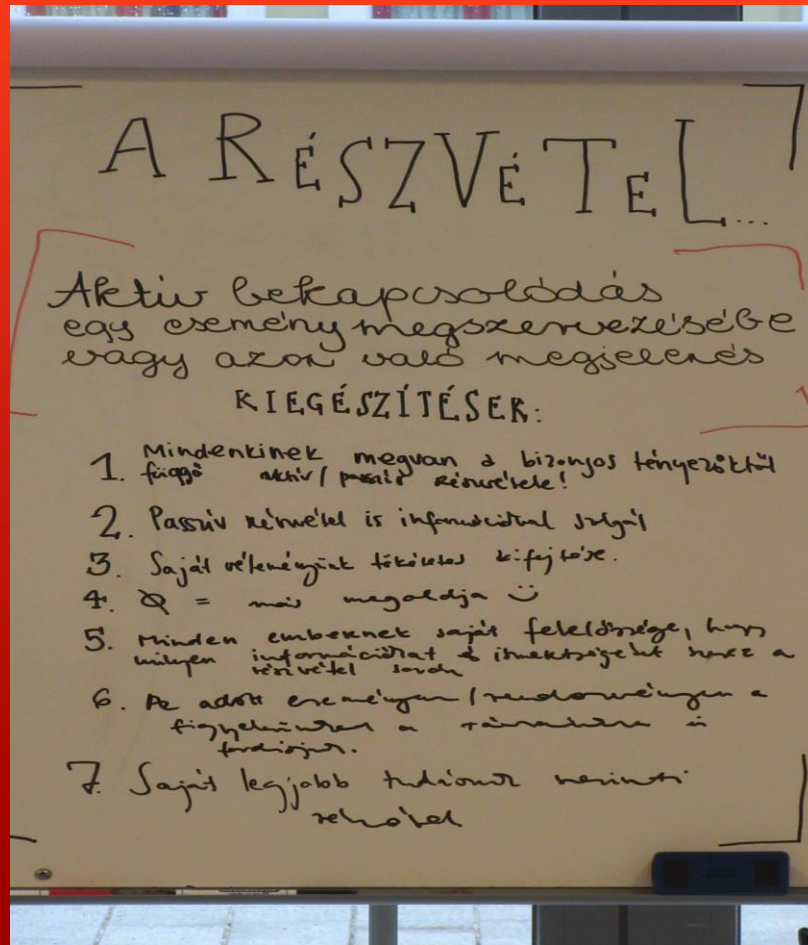 A RÉSZVÉTEL...
Aktív bekapcsolódás
egy esemény megszervezésébe
vagy azon való megjelenés
KIEGÉSZÍTÉSEK:
1. Mindenkinek megvan a bizonyos tényezőktől
függő aktív / passzív részvétele!
2. Passzív részvétel is információval szolgál
3. Saját véleményünk tökéletes kifejtése.
4. = más megoldja
5. Minden embernek saját felelőssége, hogy
milyen információkat és ismeretségeket szerez a
részvétel során
6. Az adott eseményen / rendezvényen a
figyelmünket a is
fordítsuk.
7. Saját legjobb tudásunk szerinti
részvétel